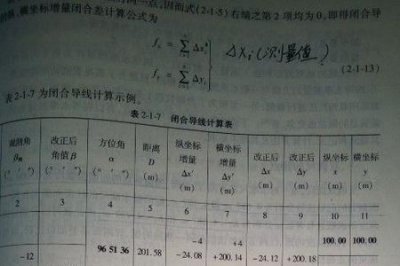 因而式(2-1-5)右端之第2项均为0,即得闭合导
横坐标增量闭合差计算公式为
fx = ∑ Δx′i
fy = ∑ Δy′i
ΔXi(测量值)
(2-1-13)
表2-1-7为闭合导线计算示例。
表 2-1-7 闭合导线计算表
观测角 βm (° ′ ″)
改正后 角值 β (° ′ ″)
方位角 α (° ′ ″)
距离 D (m)
纵坐标 增量 Δx′ (m)
横坐标 增量 Δy′ (m)
改正后 Δx (m)
改正后 Δy (m)
纵坐标 x (m)
横坐标 y (m)
2 3 4 5 6 7 8 9 10 11
100.00 100.00
-4 +4
-12 96 51 36 201.58 -24.08 +200.14 -24.12 +200.18